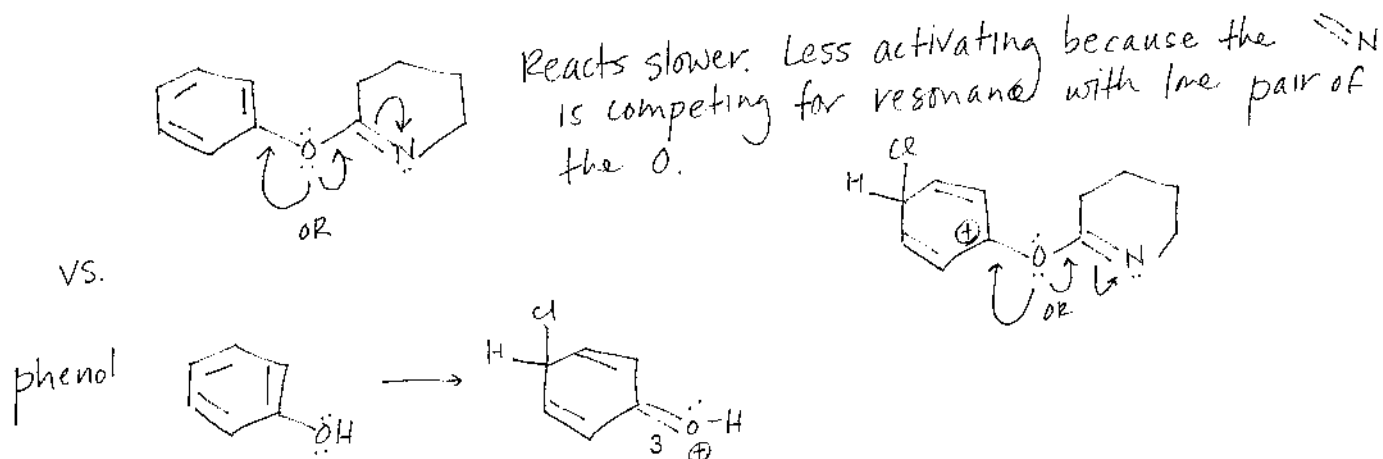 Reacts slower. Less activating because the =N
is competing for resonance with lone pair of
the O.
O
N
OR
Cl
H
⊕
O
N
OR
vs.
phenol
OH
Cl
H
3
O-H
⊕